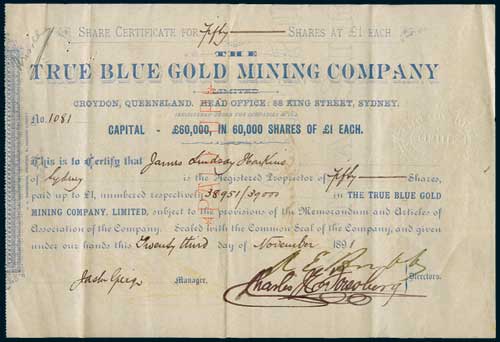 SHARE CERTIFICATE FOR Fifty SHARES AT £1 EACH.
THE
TRUE BLUE GOLD MINING COMPANY
LIMITED
CROYDON, QUEENSLAND. HEAD OFFICE: 88 KING STREET, SYDNEY.
No. 1081
CAPITAL - £60,000, IN 60,000 SHARES OF £1 EACH.
This is to Certify that James Lindsay Hoskins
of Sydney is the Registered Proprietor of fifty Shares,
paid up to £1, numbered respectively 38951/39000 in THE TRUE BLUE GOLD
MINING COMPANY, LIMITED, subject to the provisions of the Memorandum and Articles of
Association of the Company. Sealed with the Common Seal of the Company, and given
under our hands this Twenty third day of November 1891
Manager.
Charles
Directors.